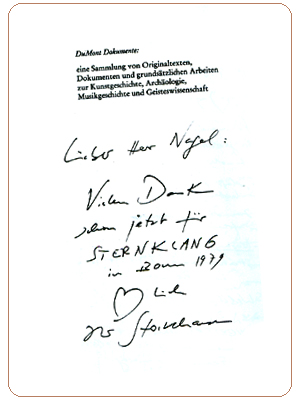 DuMont Dokumente:
eine Sammlung von Originaltexten,
Dokumenten und grundsätzlichen Arbeiten
zur Kunstgeschichte, Archäologie,
Musikgeschichte und Geisteswissenschaft
Lieber Herr Nagel:
Vielen Dank
schon jetzt für
STERNKLANG
in Bonn 1979
♡ lich
Ihr Stockhausen